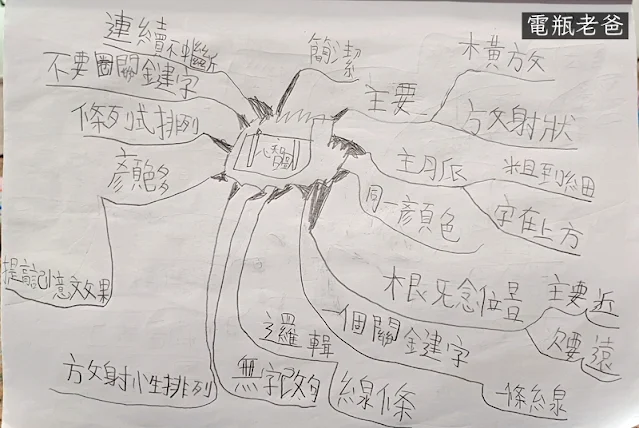 電瓶老爸
連續不斷
不要圈關鍵字
條列式排列
顏色多
提高記憶效果
放射性排列
簡潔
心智圖
主要
橫放
放射狀
主脈
粗到細
字在上方
同一顏色
概念位置
主要近
次要遠
一個關鍵字
一條線
邏輯
線條
無字